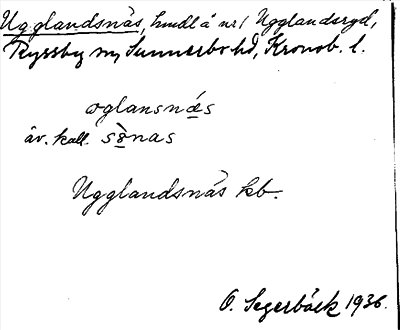 Ugglandsnäs, hmdl å nr 1 Ugglandsryd,
Ryssby sn, Sunnerbo hd, Kronob. l.
oglansnä̀s
äv. kall. sònas
Ugglandsnäs kb.
O. Segerbäck 1936.